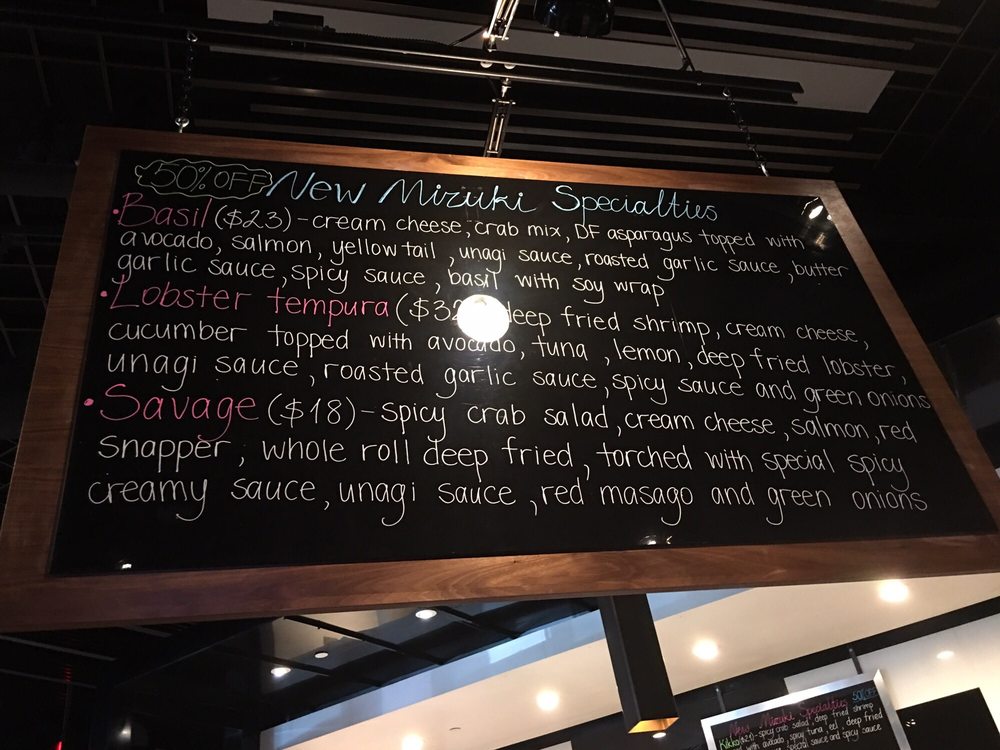 50% OFF New Mizuki Specialties
• Basil ($23) - cream cheese, crab mix, DF asparagus topped with
avocado, salmon, yellow tail, unagi sauce, roasted garlic sauce, butter
garlic sauce, spicy sauce, basil with soy wrap
• Lobster tempura ($32 deep fried shrimp, cream cheese,
cucumber topped with avocado, tuna, lemon, deep fried lobster,
unagi sauce, roasted garlic sauce, spicy sauce and green onions
• Savage ($18) - spicy crab salad, cream cheese, salmon, red
snapper, whole roll deep fried, torched with special spicy
creamy sauce, unagi sauce, red masago and green onions
New Mizuki Specialties 50% OFF
spicy crab salad, deep fried shrimp
with avocado, spicy tuna, eel, deep fried
sauce and spicy sauce